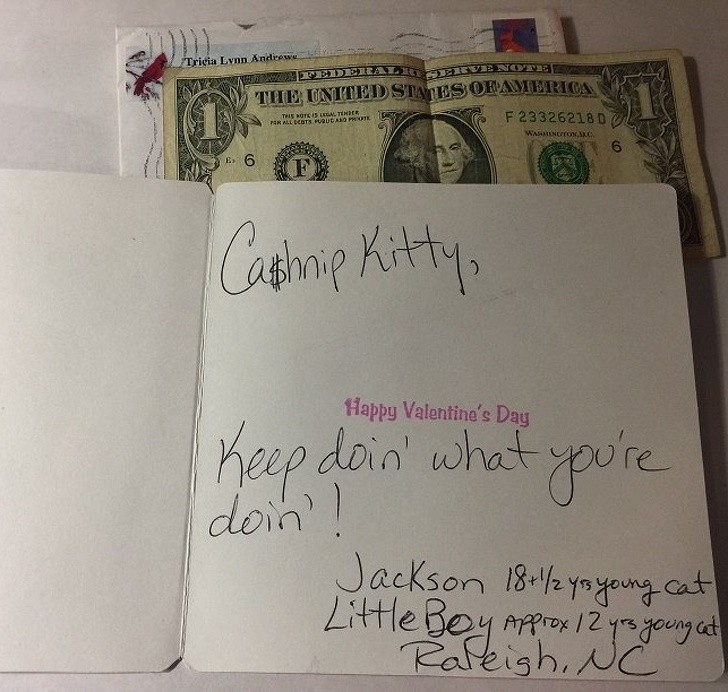 Tricia Lynn Andrews
FEDERAL RESERVE NOTE
THE UNITED STATES OF AMERICA
THIS NOTE IS LEGAL TENDER
FOR ALL DEBTS, PUBLIC AND PRIVATE
F 23326218 D
WASHINGTON, D.C.
1
1
E3 6
F
6
Ca$hnip Kitty,
Happy Valentine's Day
Keep doin' what you're
doin'!
Jackson 18+1/2 yrs young cat
Little Boy Approx 12 yrs young cat
Raleigh, NC